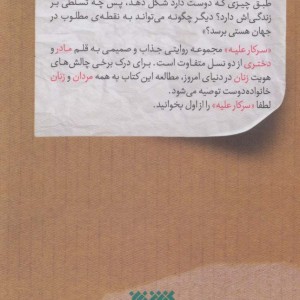 طبق چیزی که دوست دارد شکل دهد، پس چه تسلطی بر
زندگی‌اش دارد؟ دیگر چگونه می‌تواند به نقطه‌ی مطلوب در
جهان هستی برسد؟»
«سرکار علیه» مجموعه روایتی جذاب و صمیمی به قلم مادر و
دختری از دو نسل متفاوت است. برای درک برخی چالش‌های
هویت زنان در دنیای امروز، مطالعه این کتاب به همه مردان و زنان
خانواده‌دوست توصیه می‌شود.
لطفا «سرکار علیه» را از اول بخوانید.